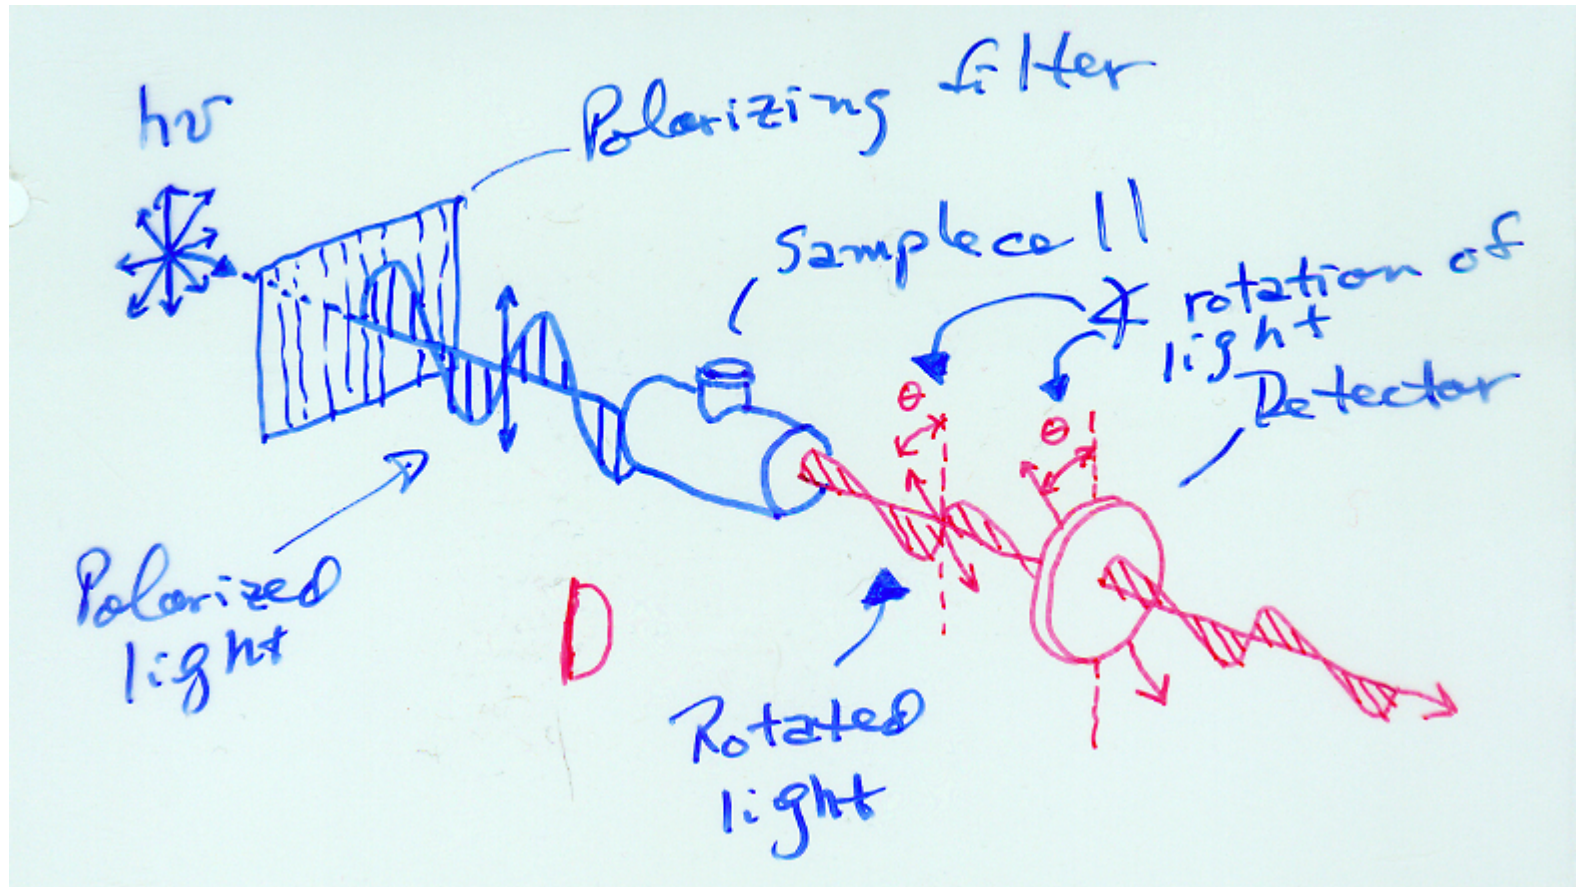 hν
Polarizing filter
Sample cell
∡ rotation of
light
Detector
θ
θ
Polarized
light
D
Rotated
light